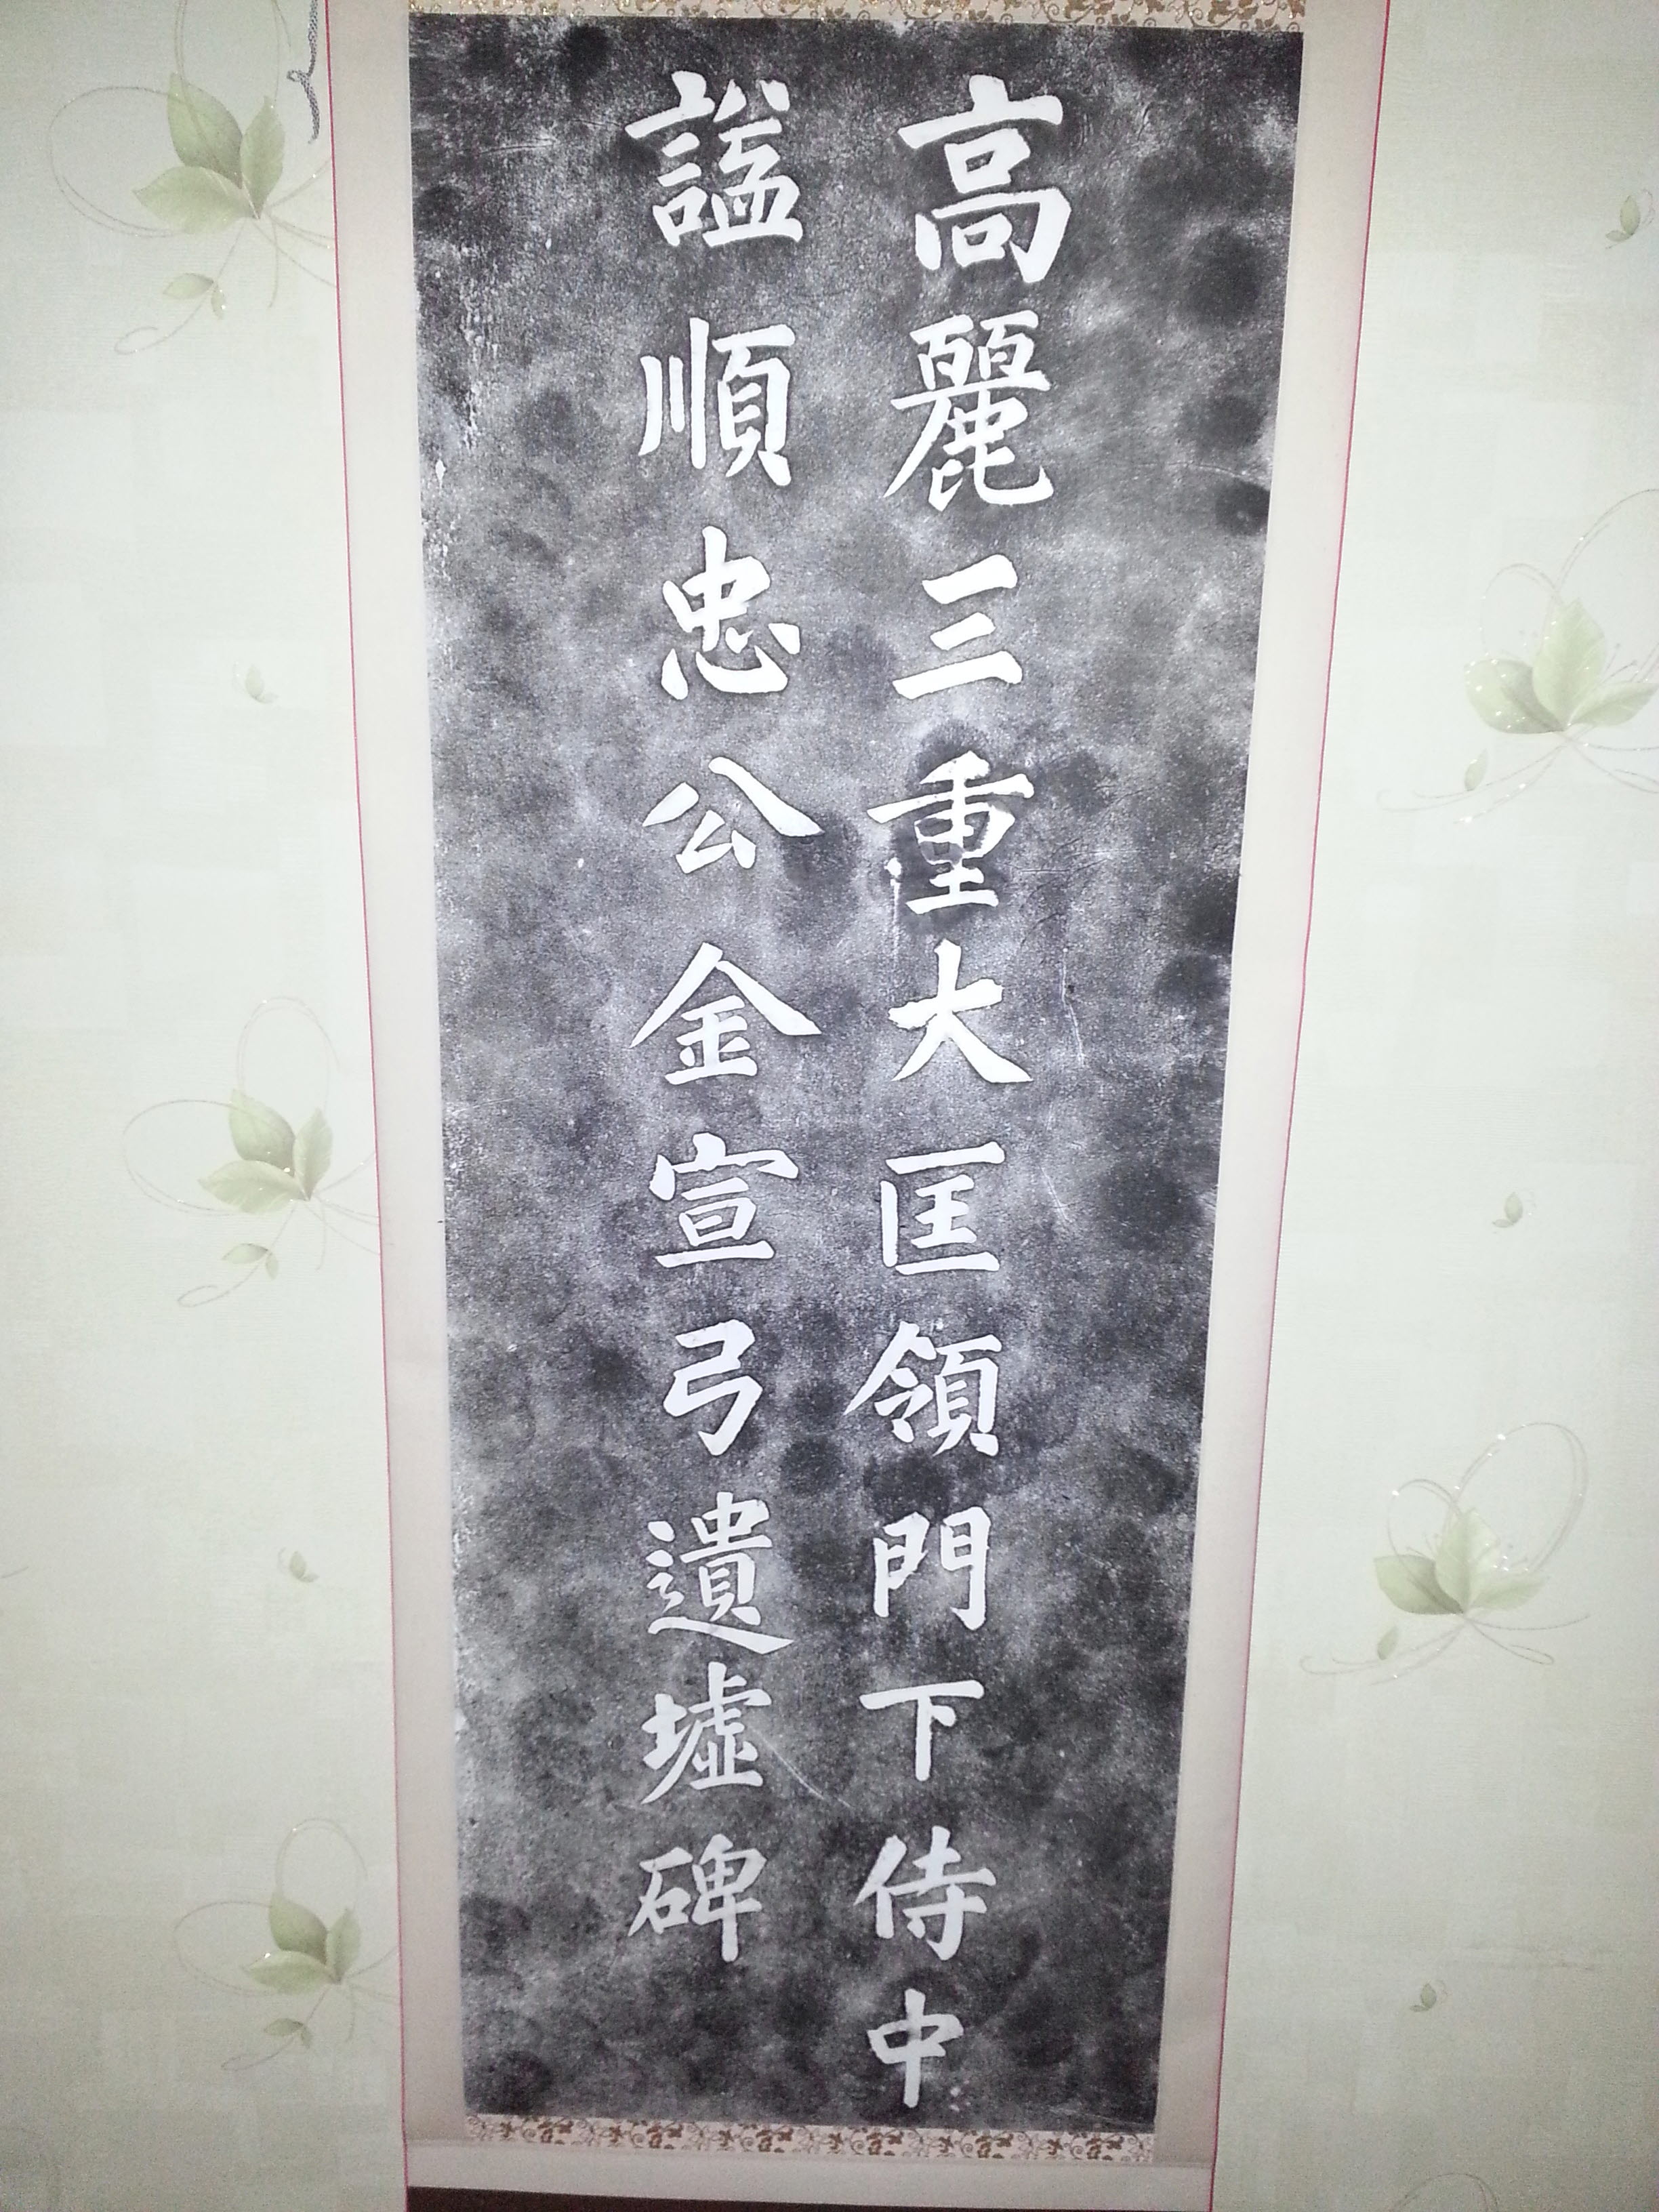 高麗三重大匡領門下侍中
謚順忠公金宣弓遺墟碑